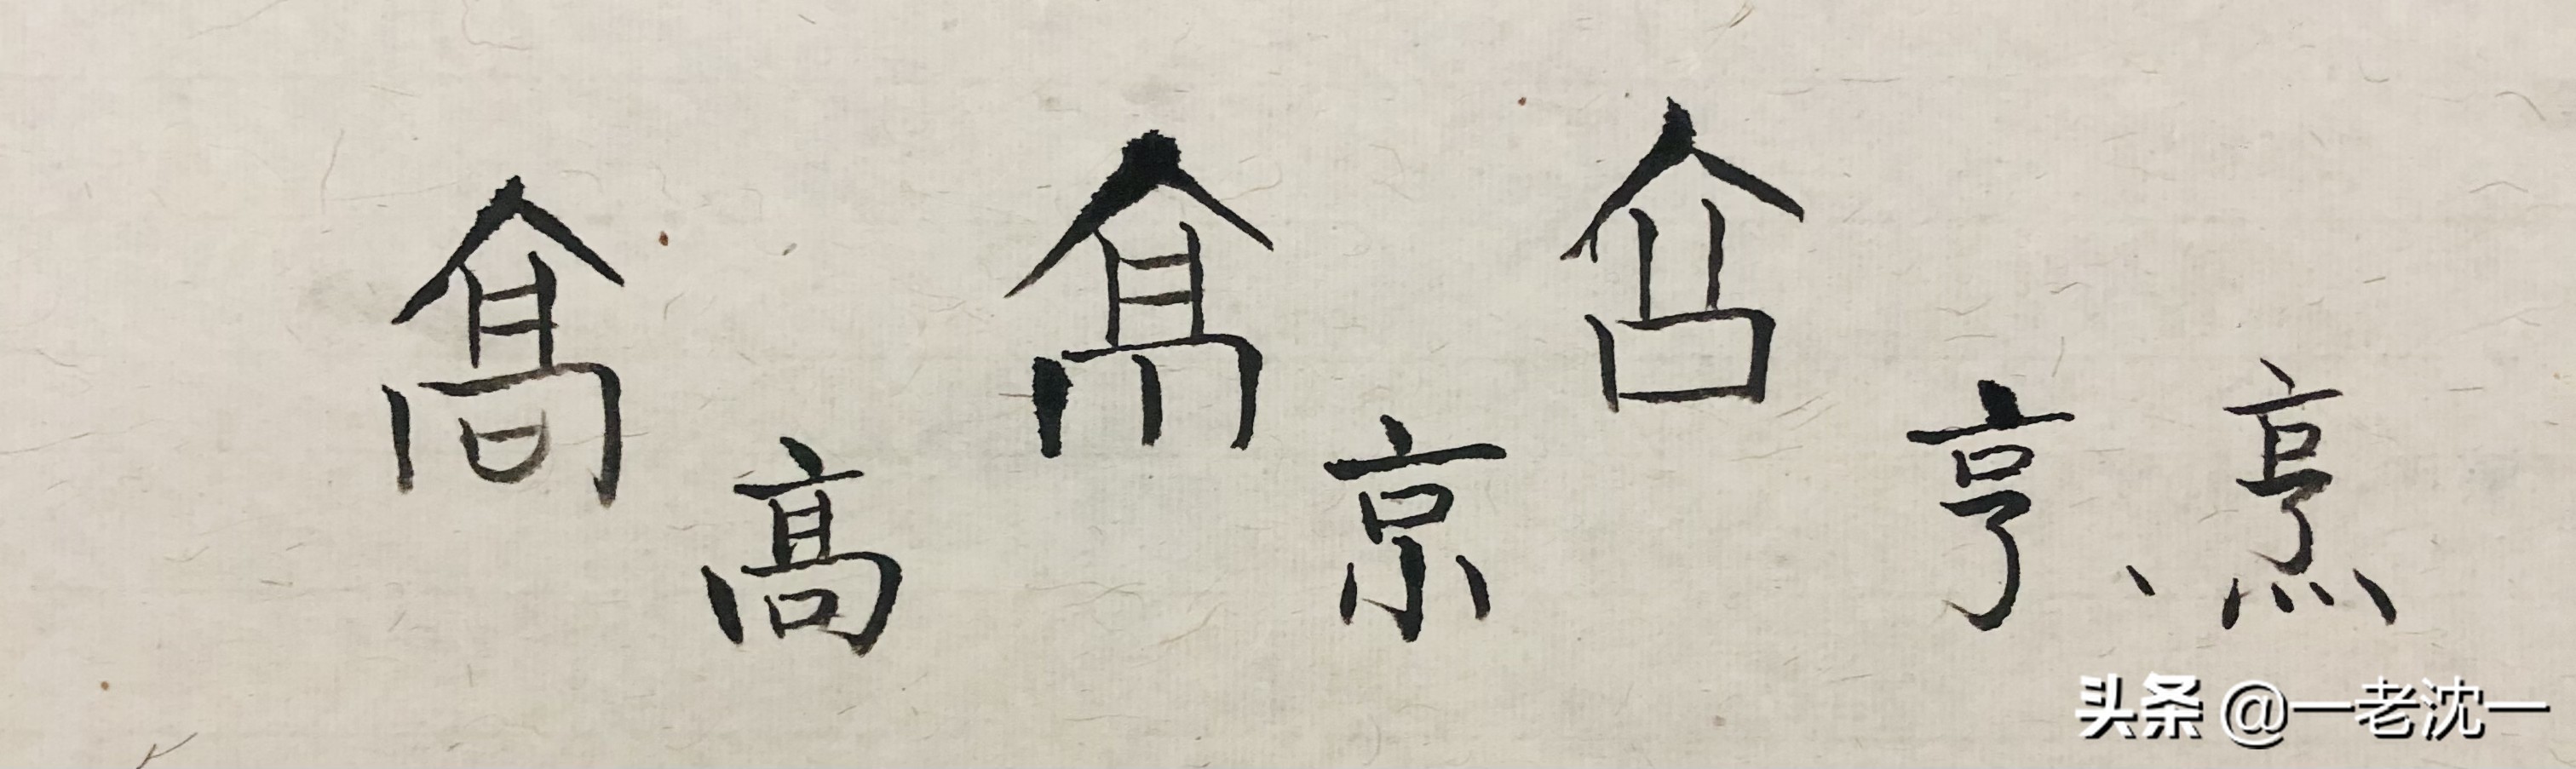 高 高 京 京 亨 亨、烹
头条 @一老沈一